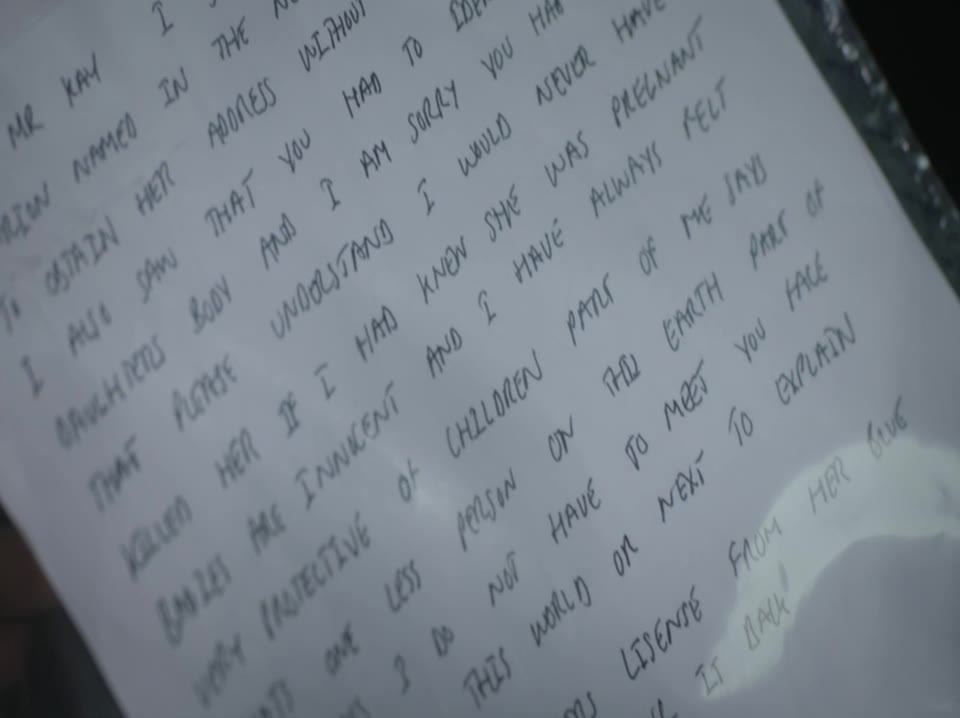 MR KAY I
NAMED IN THE
TO OBTAIN HER ADDRESS WITHOUT
I ALSO SAW THAT YOU HAD TO
DAUGHTERS BODY AND I AM SORRY YOU HAD
THAT PLEASE UNDORSTAND I WOULD NEVER HAVE
KILLED HER IF I HAD KNEW SHE WAS PREGNANT
BABIES ARE INNOCENT AND I HAVE ALWAYS FELT
VERY PROTECTIVE OF CHILDREN PART OF ME SAYS
ONE LESS PERSON ON THIS EARTH PART OF
I DO NOT HAVE TO MEET YOU FACE
THIS WORLD OR NEXT TO EXPLAIN
LISENSE FROM HER GLUE
IT BACK